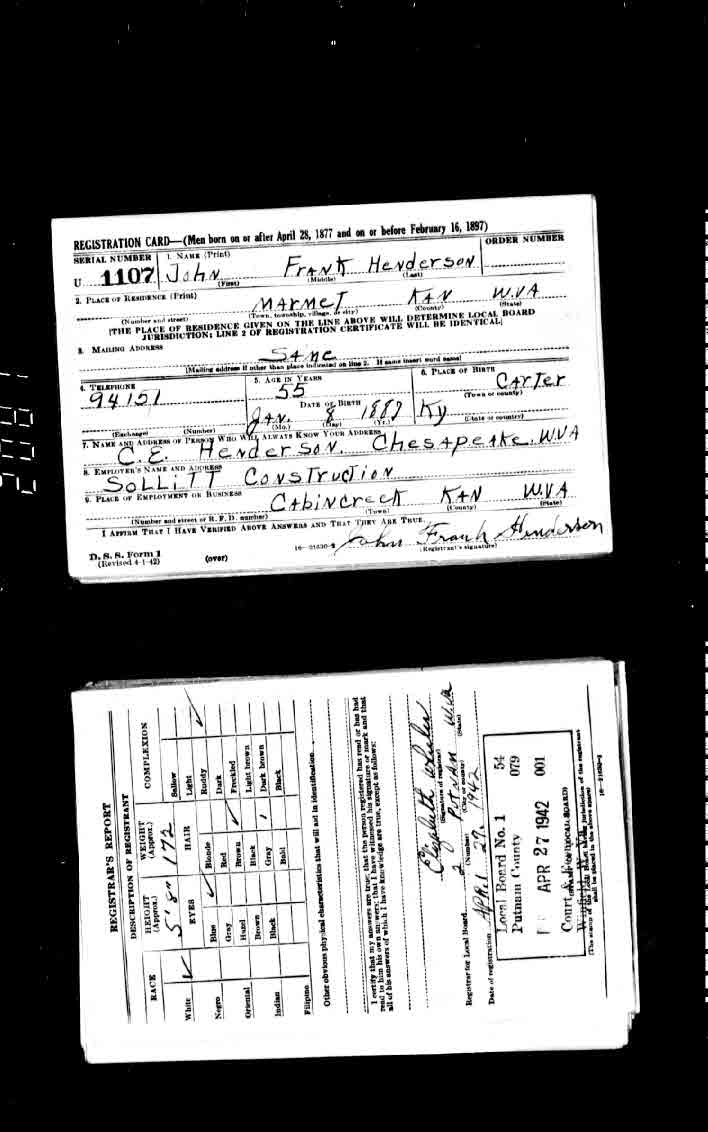 REGISTRATION CARD—(Men born on or after April 28, 1877 and on or before February 16, 1897)
SERIAL NUMBER 1. NAME (Print) ORDER NUMBER
U 1107 John FRANK HENDERSON
(First) (Middle) (Last)
2. PLACE OF RESIDENCE (Print)
MARMET KAN W.VA
(Number and street) (Town, township, village, or city) (County) (State)
[THE PLACE OF RESIDENCE GIVEN ON THE LINE ABOVE WILL DETERMINE LOCAL BOARD
JURISDICTION; LINE 2 OF REGISTRATION CERTIFICATE WILL BE IDENTICAL]
3. MAILING ADDRESS
SAME
[Mailing address if other than place indicated on line 2. If same insert word same]
4. TELEPHONE 5. AGE IN YEARS 6. PLACE OF BIRTH
94151 55 CARTER
DATE OF BIRTH (Town or county)
JAN. 8 1887 Ky
(Exchange) (Number) (Mo.) (Day) (Yr.) (State or country)
7. NAME AND ADDRESS OF PERSON WHO WILL ALWAYS KNOW YOUR ADDRESS
C.E. HENDERSON. CHESAPEAKE. W.VA
8. EMPLOYER'S NAME AND ADDRESS
SOLLITT CONSTRUCTION
9. PLACE OF EMPLOYMENT OR BUSINESS
CABINCREEK KAN W.VA
(Number and street or R. F. D. number) (Town) (County) (State)
I AFFIRM THAT I HAVE VERIFIED ABOVE ANSWERS AND THAT THEY ARE TRUE.
John Frank Henderson
D. S. S. Form 1 (over) 16—21630-2 (Registrant's signature)
(Revised 4-1-42)
REGISTRAR'S REPORT
DESCRIPTION OF REGISTRANT
RACE HEIGHT (Approx.) WEIGHT (Approx.) COMPLEXION
5' 8" 172
EYES HAIR
White ✓ Sallow
Light ✓
Negro Blue ✓ Blonde Ruddy
Gray Red Dark
Oriental Hazel Brown ✓ Freckled
Brown Black Light brown
Indian Black Gray Dark brown
Bald Black
Filipino
Other obvious physical characteristics that will aid in identification
I certify that my answers are true; that the person registered has read or has had
read to him his own answers; that I have witnessed his signature or mark and that
all of his answers of which I have knowledge are true, except as follows:
Elizabeth
(Signature of registrar)
Registrar for Local Board 2 Putnam W.Va
(Number) (City or county) (State)
Date of registration APRIL 27, 1942
Local Board No. 1 54
Putnam County 079
APR 27 1942 001
(The stamp of the Local Board having jurisdiction of the registrant
shall be placed in the above space)
16—21630-2